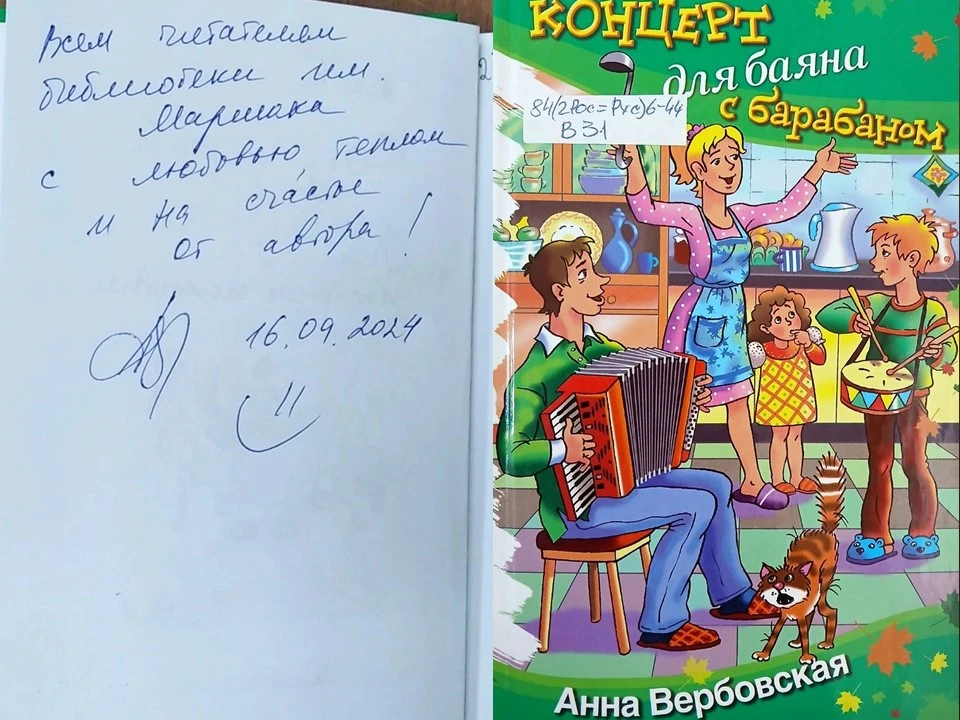 Всем читателям
библиотеки им.
Маршака
с любовью теплом
и на счастье
от автора!
16.09.2024
КОНЦЕРТ
для баяна
с барабаном
84(2Рос=Рус)6-44
В 31
Анна Вербовская